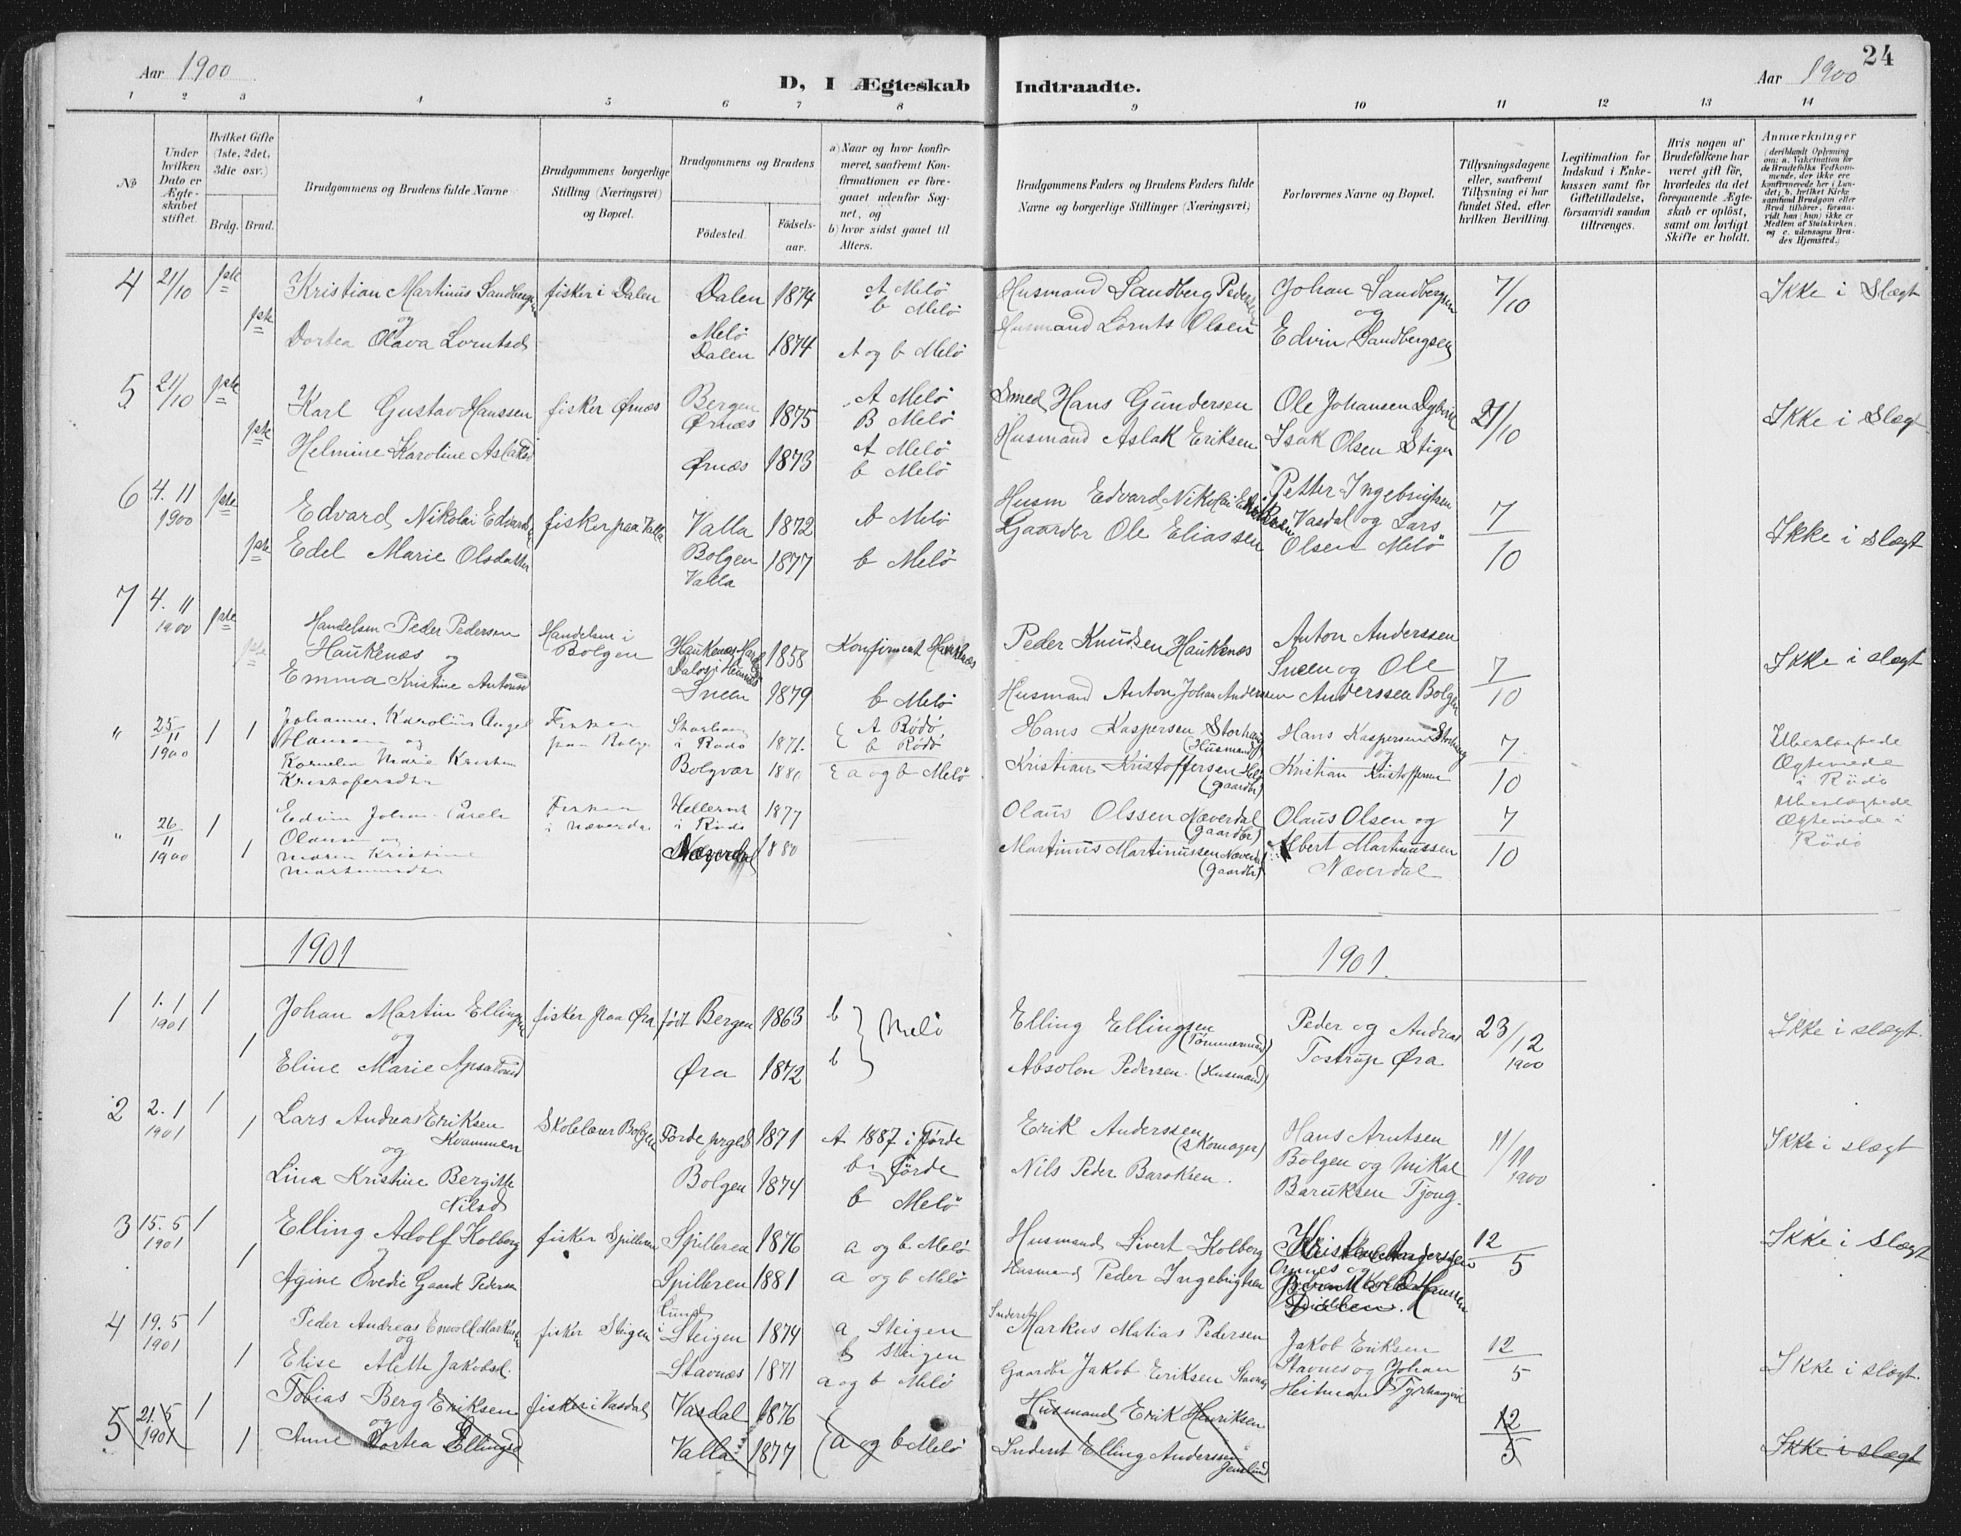 Aar 1900
D, I Ægteskab
Indtraadte.
Aar 1900
24
1 2 3 4 5 6 7 8 9 10 11 12 13 14
No
Under hvilken Dato er Ægteskabet stiftet.
Hvilket Gifte (1ste, 2det, 3die osv.)
Brdg. Brud.
Brudgommens og Brudens fulde Navne
Brudgommens borgerlige Stilling (Næringsvei) og Bopæl.
Brudgommens og Brudens
Fødested.
Fødselsaar.
a) Naar og hvor konfirmeret, saafremt Konfirmationen er foregaaet udenfor Sognet, og
b) hvor sidst gaaet til Alters.
Brudgommens Faders og Brudens Faders fulde Navne og borgerlige Stillinger (Næringsvei)
Forlovernes Navne og Bopæl.
Tillysningsdagene eller, saafremt Tillysning ei har fundet Sted, efter hvilken Bevilling.
Legitimation for Indskud i Enkekassen samt for Giftetilladelse, forsaavidt saadan tiltrænges.
Hvis nogen af Brudefolkene har været gift før, hvorledes da det foregaaende Ægteskab er opløst, samt om lovligt Skifte er holdt.
Anmærkninger
4 21/10 1ste Kristian Martinus Sandbergsen fisker i Dalen Dalen 1874 A Melö b Melö Husmand Sandberg Pedersen Johan Sandbergsen og 7/10 Ikke i Slægt
1ste og Dortea Olava Lorntsd Melö Dalen 1874 A og b Melö Husmand Lornts Olsen Edvin Sandbergsen
5 21/10 1ste Karl Gustav Hanssen fisker Ørnæs Bergen Ørnæs 1875 A Melö B Melö Smed Hans Gundersen Ole Johansen Dybvik 21/10 Ikke i Slægt
1ste Helmine Karoline Aslaksd Ørnæs 1873 A Melö b Melö Husmand Aslak Eriksen Isak Olsen Stigen
6 4. 11 1900 1ste Edvard Nikolai Edvardsen fisker paa Valla Valla 1872 A Melö Husm Edvard Nikolai Eriksen Petter Ingebrigtsen 7/10 Ikke i slægt
1ste Edel Marie Olsdatter Bolgen Valla 1877 b Melö Gaardbr Ole Eliassen Vasdal og Lars Olsen Melö
7 4. 11 1900 1ste Handelsm Peder Pedersen Haukenæs og Handelsm i Bolgen 1858 Peder Knudsen Haukenæs Anton Anderssen 7/10 Ikke i slægt
1ste Emma Kristine Antonsd Sneen 1879 b Melö Husmand Anton Johan Andersen Sneen og Ole Anderssen Bolgen
" 25/11 1900 1 1 Johannes Karolius Angel Hansen og 1871. A Rödö b Rödö Hans Kaspersen Storhaug (Husmand) Hans Kaspersen Storhaug og 7/10 Ubeslægtede Ægteviede i Rödö
Kornelia Marie Kristine Kristofersdtr Bolgvær 1880 a og b Melö Kristian Kristoffersen (Gaardbr) Kristian Kristoffersen
" 26/11 1900 1 Edvin Johan Olausen og 1877 Olaus Olssen Næverdal (gaardbr) Olaus Olsen og 7/10 Ubeslægtede Ægteviede i Rödö
1 Maren Kristine Martinusdtr Næverdal 1880 Martinus Martinussen Næverdal (gaardbr) Albert Martinussen Næverdal
1901
1901.
1 1. 1 1901 1 Johan Martin Ellingsen og fisker paa Øra född Bergen 1863 b Melö Elling Ellingsen (Tömmermand) Peder og Andreas Tostrup Øra 23/12 1900 Ikke i slægt.
1 Eline Marie Apsalonsd Øra 1872 b Absolon Pedersen. (Husmand)
2 2. 1 1901 1 Lars Andreas Eriksen Kvammen og Skolelærer Bolgen Førde prgld 1871 A 1887 i Førde b. Førde Erik Anderssen (Skomager) Hans Arntsen 11/11 1900 Ikke i slægt
1 Lina Kristine Bergitte Nilsd Bolgen 1874 b Melö Nils Peder Baroksen. Bolgen og Mikal Baruksen Tjong.
3 15. 5 1901 1 Elling Adolf Kolberg og fisker Spilleren Spilleren 1876 a og b Melö Husmand Sivert Kolberg 12/5 Ikke i Slægt
1 Agine Ovedie Gaard Pedersen Spilleren 1881 a og b Melö Husmand Peder Ingebrigtsen
4 19. 5 1901 Peder Andreas Enevold Markussen og fisker Steigen i Steigen 1874 a Steigen b Steigen Inderst Markus Matias Pedersen Jakob Eriksen 12/5 Ikke i slægt.
1 Elise Alette Jakobsd. Stavnæs 1871 a og b Melö Gaardbr Jakob Eriksen Stavnæs Stavnes og Johan Heitmand
5 21. 5 1901 1 Tobias Berg Eriksen og fisker i Vasdal Vasdal 1876 (a og b Melö Husmand Erik Henriksen 12/5 Ikke i slægt
1 Anne Dortea Ellingsd Valla 1877 Inderst Elling Anderssen